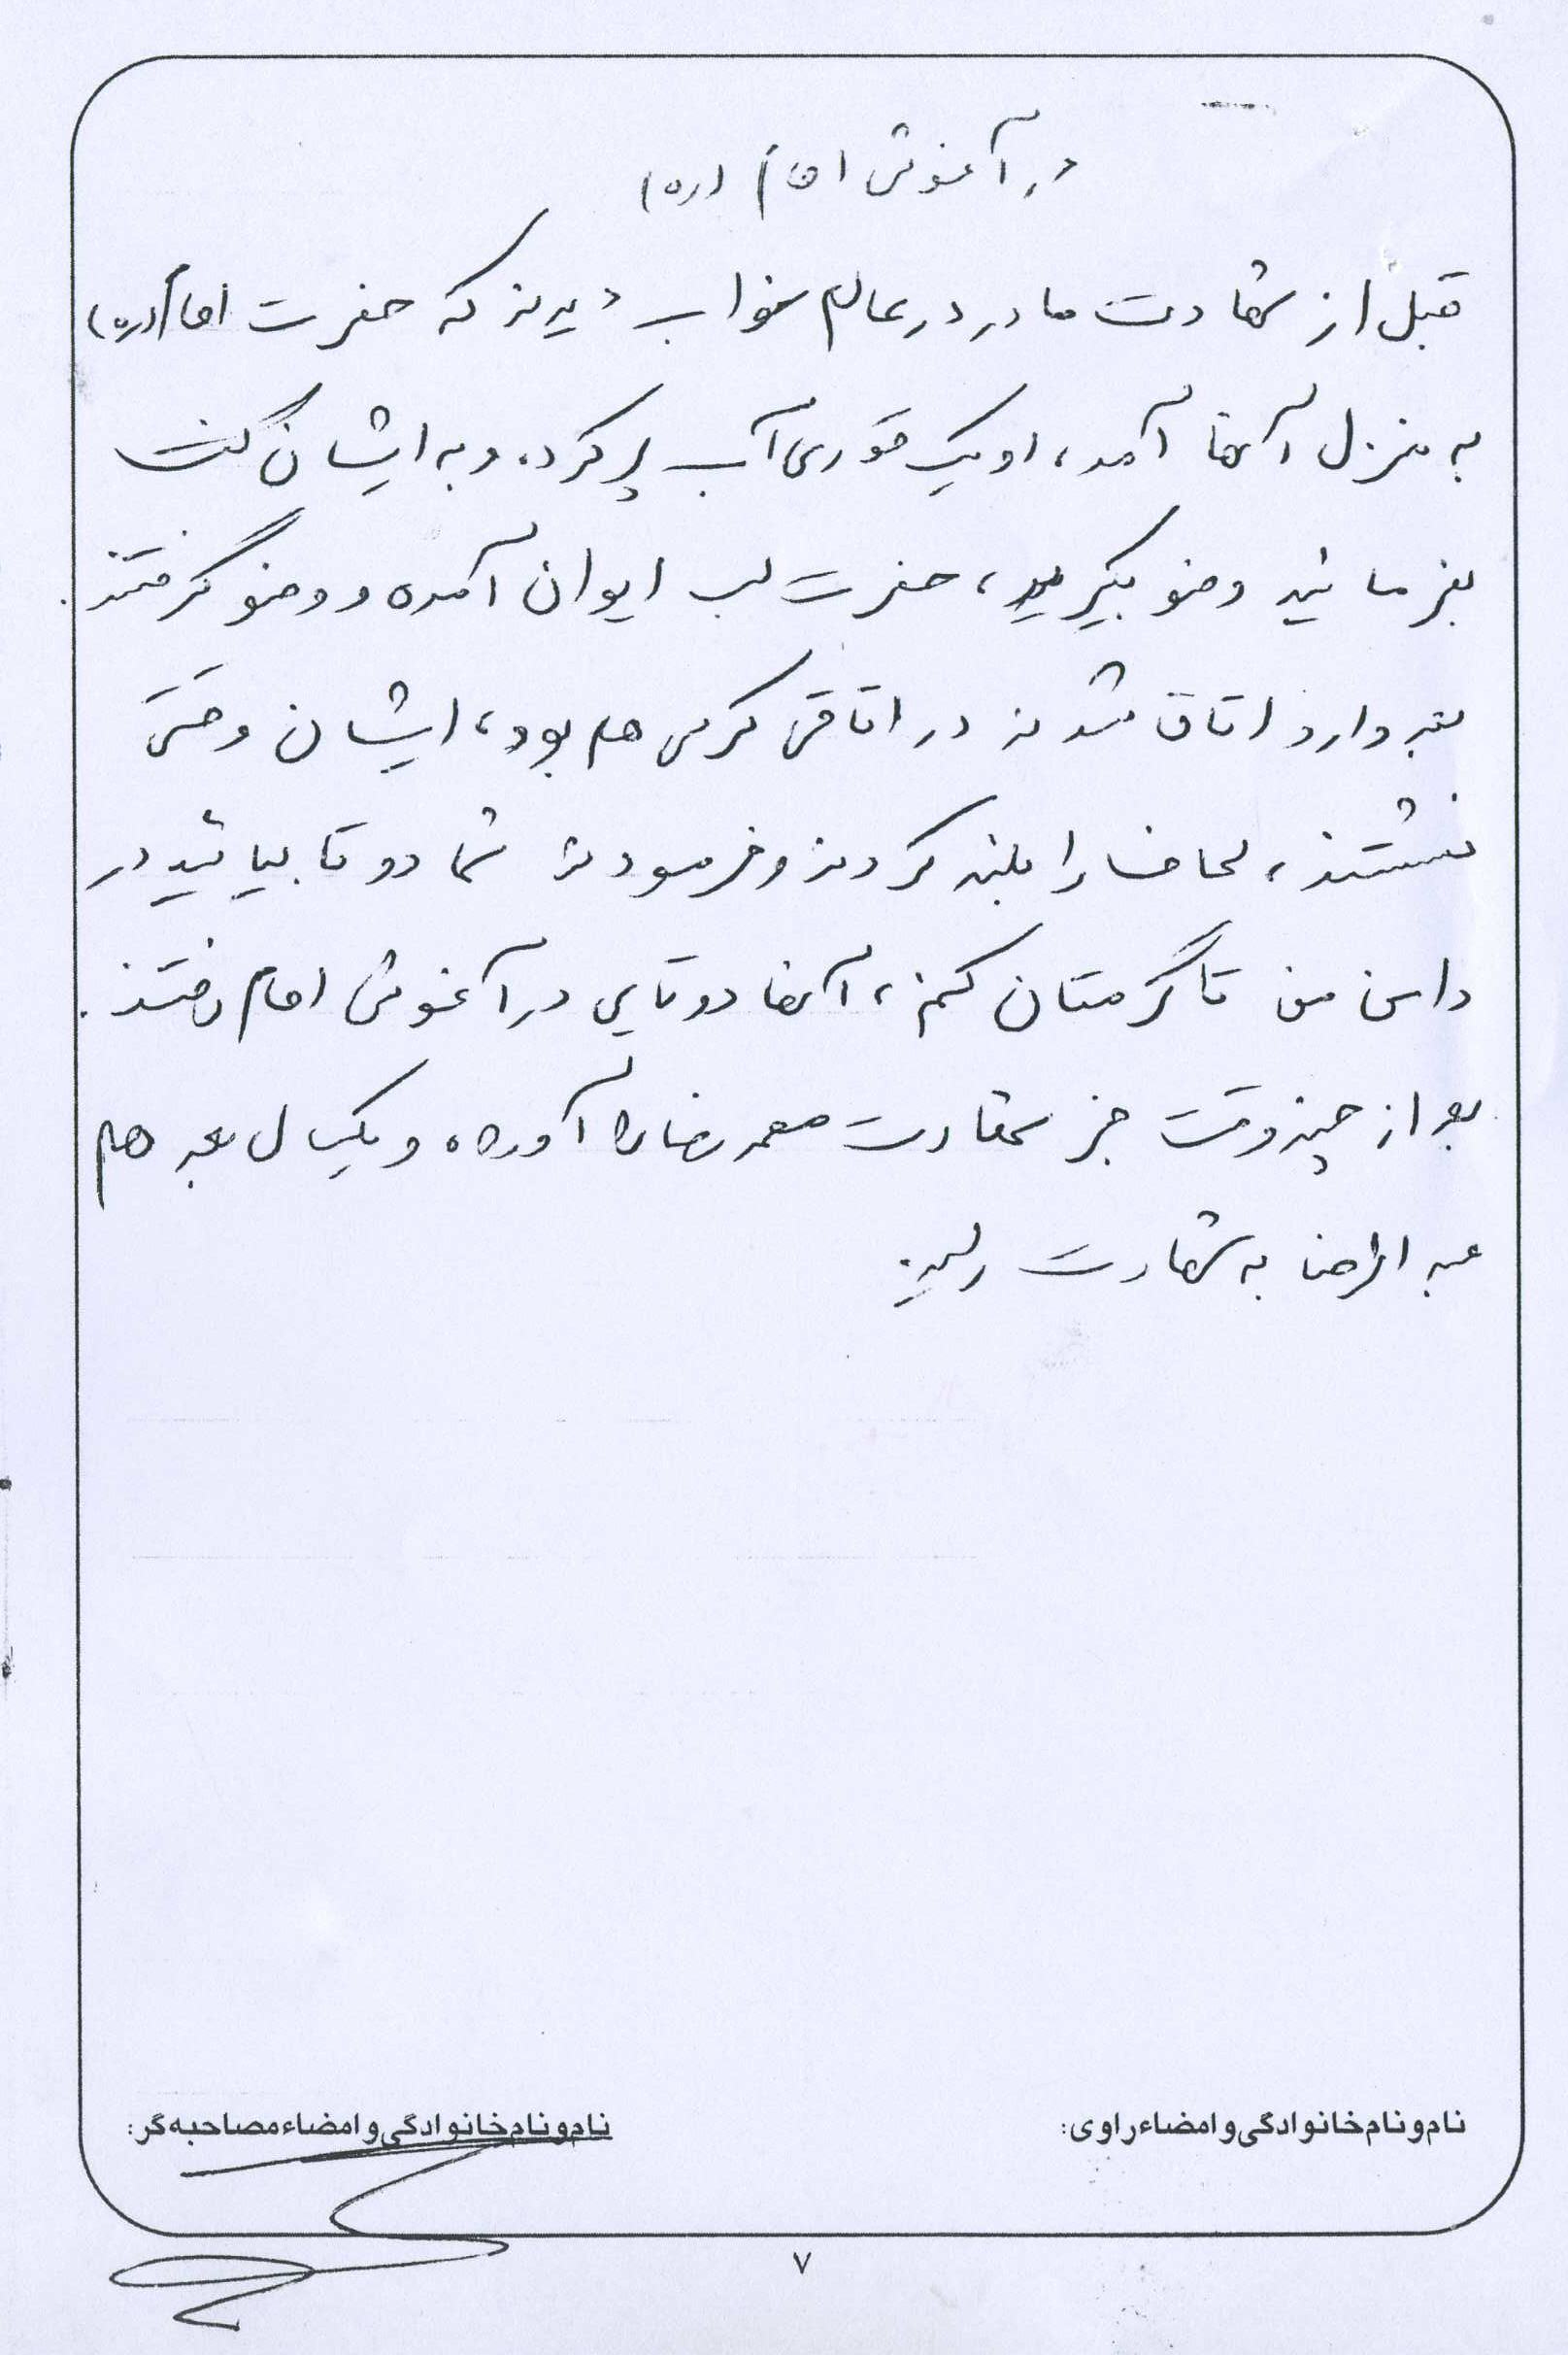 در آغوش امام (ره)
قبل از شهادت مادر در عالم خواب دیدند که حضرت امام (ره)
به منزل آنها آمد، او یک قوری آب پر کرد. و به ایشان گفت
بفرمائید وضو بگیرید، حضرت لب ایوان آمده و وضو گرفتند.
بعد وارد اتاق شدند در اتاقی کرسی هم بود، ایشان وقتی
نشستند، لحاف را بلند کردند و فرمودند شما دو تا بیائید در
دامن من تا گرمتان کنم، آنها دوتایی در آغوش امام رفتند.
بعد از چند وقت خبر شهادت محمدرضا را آورده و یکسال بعد هم
عبدالرضا به شهادت رسید.
نام و نام خانوادگی و امضاء راوی:
نام و نام خانوادگی و امضاء مصاحبه گر:
۷